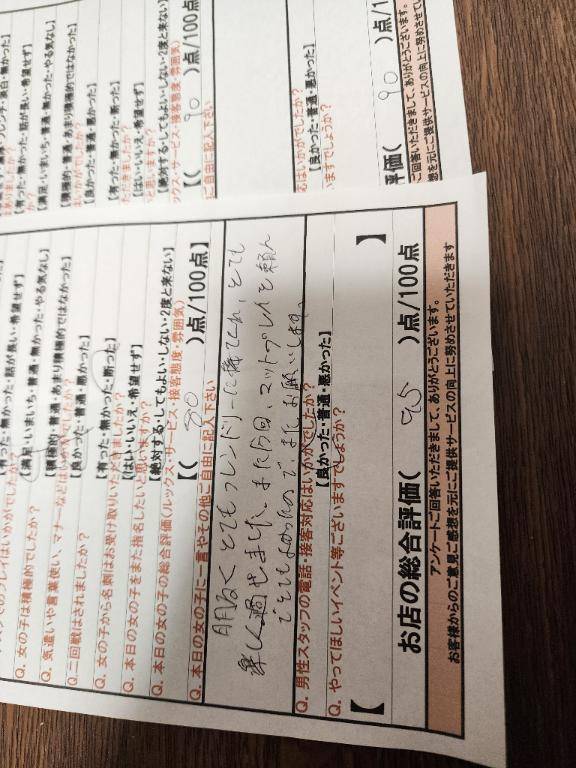 Q. 女の子は積極的でしたか?
【満足・いまいち・普通・無かった・やる気なし】
Q. 気遣いや言葉使い、マナーなどはいかがでしたか?
【積極的・普通・あまり積極的ではなかった】
Q. 二回戦はされましたか?
【良かった・普通・悪かった】
Q. 女の子から名刺はお受け取りいただきましたか?
【有った・無かった・断った】
Q. 本日の女の子をまた指名したいと思いますか?
【はい・いいえ・希望せず】
Q. 本日の女の子の総合評価(ルックス・サービス・接客態度・雰囲気)
【絶対する・してもよい・しない・2度と来ない】
【( 90 )点/100点】
Q. 本日の女の子に一言やその他ご自由に記入下さい
明るくとてもフレンドリーに接てくれ、とても
楽しく過せました、また今回、マットプレイを頼ん
でとてもよかったので、またお願いします。
Q. 男性スタッフの電話・接客対応はいかがでしたか?
【良かった・普通・悪かった】
Q. やってほしいイベント等ございますでしょうか?
【 】
お店の総合評価( 95 )点/100点
アンケートご回答いただきまして、ありがとうございます。
お客様からのご意見ご感想を元にご提供サービスの向上に努めさせていただきます
【積極的・普通・あまり積極的ではなかった】
【良かった・普通・悪かった】
【有った・無かった・断った】
【はい・いいえ・希望せず】
【絶対する・してもよい・しない・2度と来ない】
【( 90 )点/100
【良かった・普通・悪かった】
評価( 90 )点/1